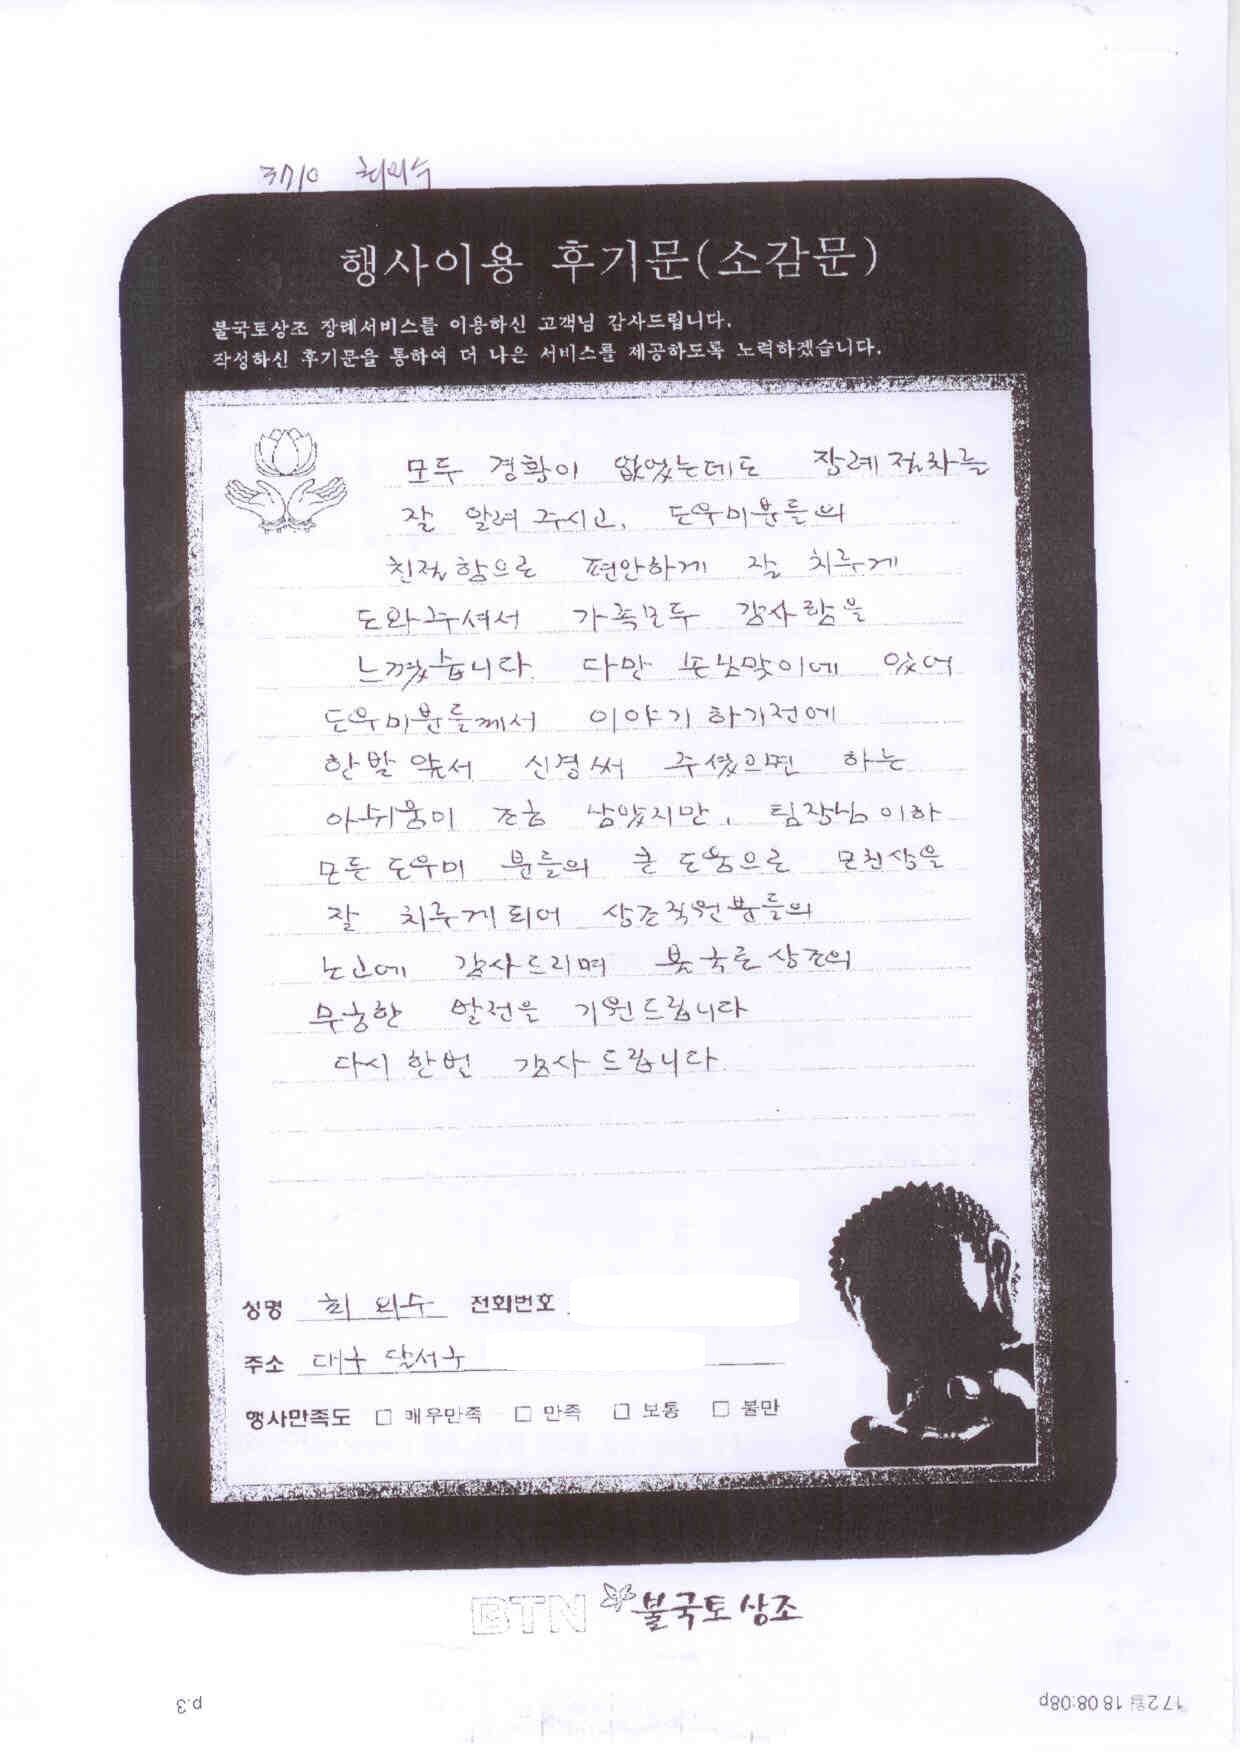 3710 최외수
행사이용 후기문(소감문)
불국토상조 장례서비스를 이용하신 고객님 감사드립니다.
작성하신 후기문을 통하여 더 나은 서비스를 제공하도록 노력하겠습니다.
모두 경황이 없었는데도 장례절차를
잘 알려주시고, 도우미분들의
친절함으로 편안하게 잘 치루게
도와주셔서 가족모두 감사함을
느꼈습니다. 다만 손님맞이에 있어
도우미분들께서 이야기 하기전에
한발 앞서 신경써 주셨으면 하는
아쉬움이 조금 남았지만, 팀장님이하
모든 도우미 분들의 큰 도움으로 모친상을
잘 치루게되어 상조직원분들의
노고에 감사드리며 불국토상조의
무궁한 발전을 기원드립니다
다시한번 감사드립니다.
성명 최외수 전화번호
주소 대구 달서구
행사만족도 □ 매우만족 □ 만족 □ 보통 □ 불만
BTN 불국토상조
p.3
172월 18 08:08p